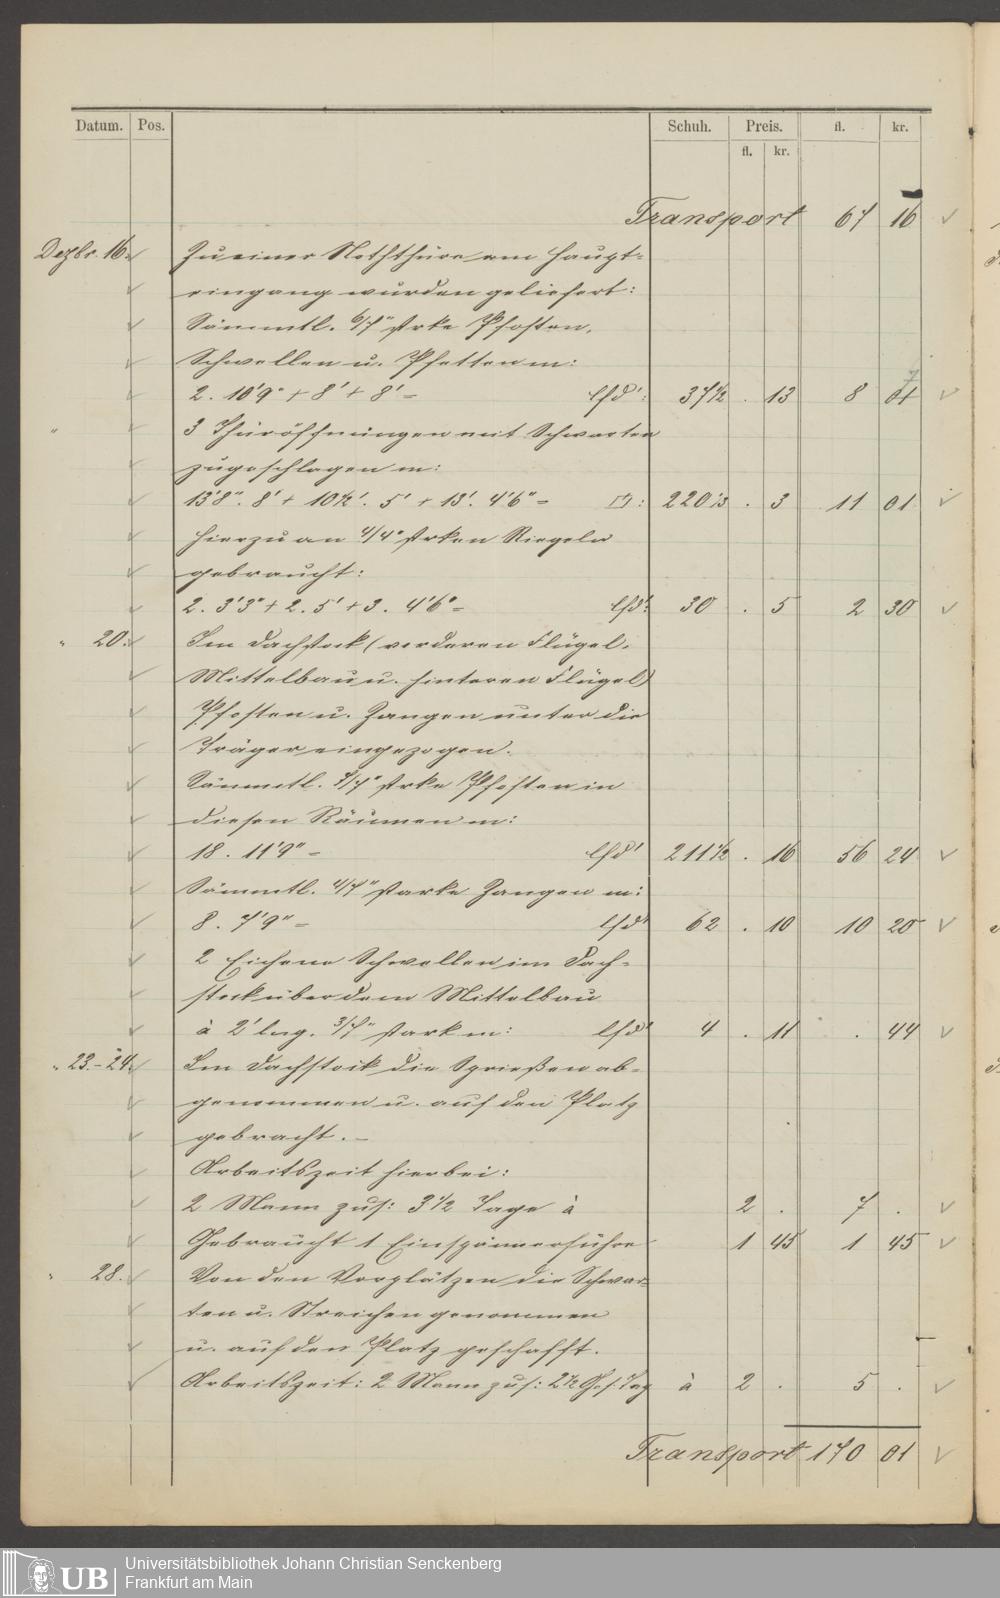 Datum. Pos. Schuh. Preis. fl. kr.
fl. kr.
Transport 67 16
Dezbr. 16. Zu einer Noththüre am Haupt-
eingang wurden geliefert:
Sämmtl. 6/7" strke Pfosten,
Schwellen u. Pfetten m:
2. 10'9" + 8' + 8' = lfd': 37 1/2 . 13 8 07
" 3 Thüröffnungen mit Schwarten
zugeschlagen m:
13'8". 8' + 10 1/2'. 5' + 13'. 4'6" = □': 220 1/3 . 3 11 01
Hierzu an 4/4" strken Riegeln
gebraucht:
2. 3'3" + 2. 5' + 3. 4'6" = lfd': 30 . 5 2 30
" 20. Im Dachstock (vorderen Flügel,
Mittelbau u. hinteren Flügel)
Pfosten u. Zangen unter die
Träger eingezogen.
Sämmtl. 7/7" strke Pfosten in
diesen Räumen m:
18. 11'9" = lfd' 211 1/2 . 16 56 24
Sämmtl. 4/7" starke Zangen m:
8. 7'9" = lfd' 62 . 10 10 20
2 Eichene Schwellen im Dach-
stock über dem Mittelbau
à 2' lng. 3/7" stark m: lfd' 4 . 11 . 44
" 23.-24. Im Dachstock die Sprießen ab-
genommen u. auf den Platz
gebracht. –
Arbeitszeit hierbei:
2 Mann zus: 3 1/2 Tage à 2 . 7 .
Gebraucht 1 Einspännerfuhre 1 45 1 45
" 28. Von den Vorplätzen die Schwar-
ten u. Streichen genommen
u. auf den Platz geschafft.
Arbeitszeit: 2 Mann zus: 2 1/2 Tag à 2 . 5 .
Transport 170 01
UB Universitätsbibliothek Johann Christian Senckenberg
Frankfurt am Main